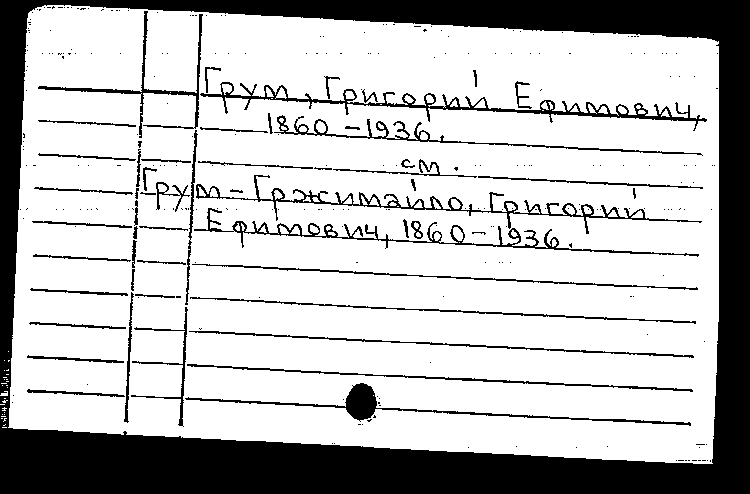 Грум, Григорий Ефимович,
1860-1936.
см.
Грум-Гржимайло, Григорий
Ефимович, 1860-1936.